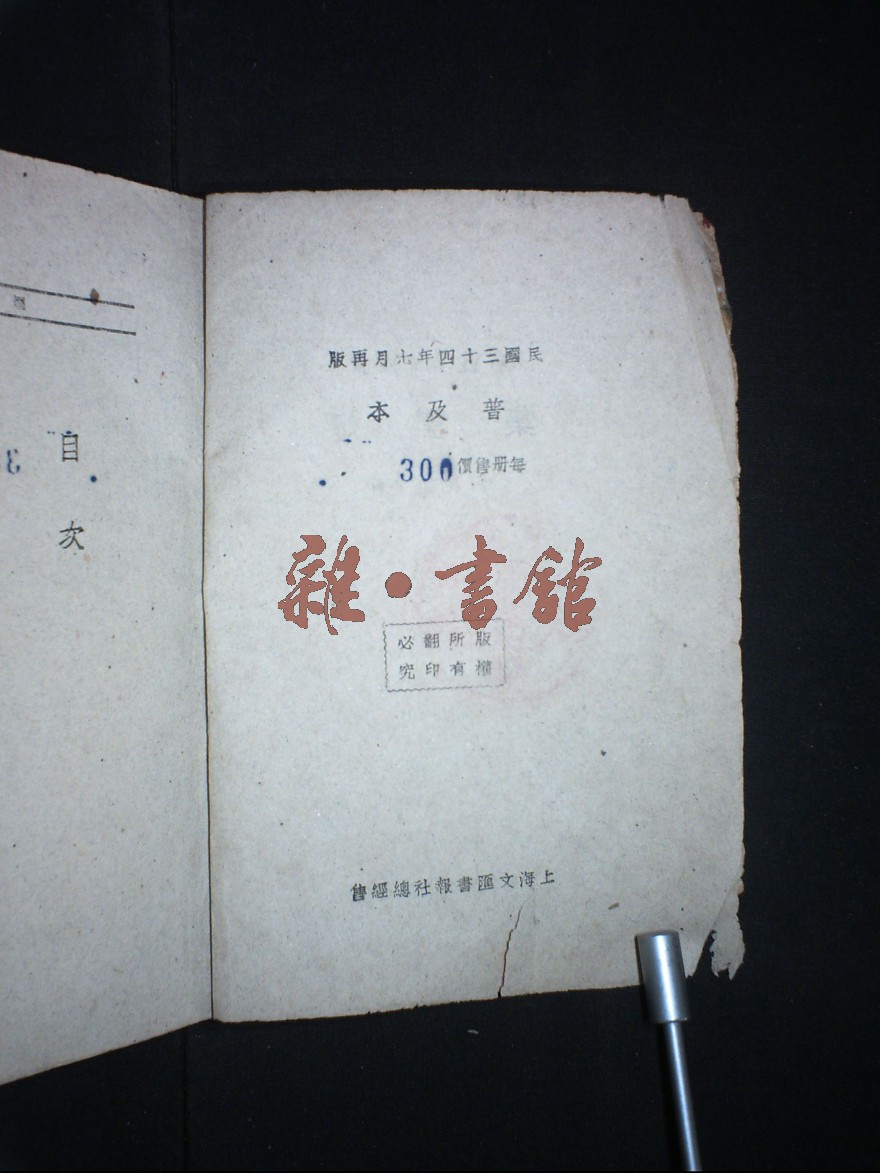 民國三十四年七月再版
普及本
每册售價300
雜·書館
版權所有翻印必究
上海文匯書報社總經售
目次